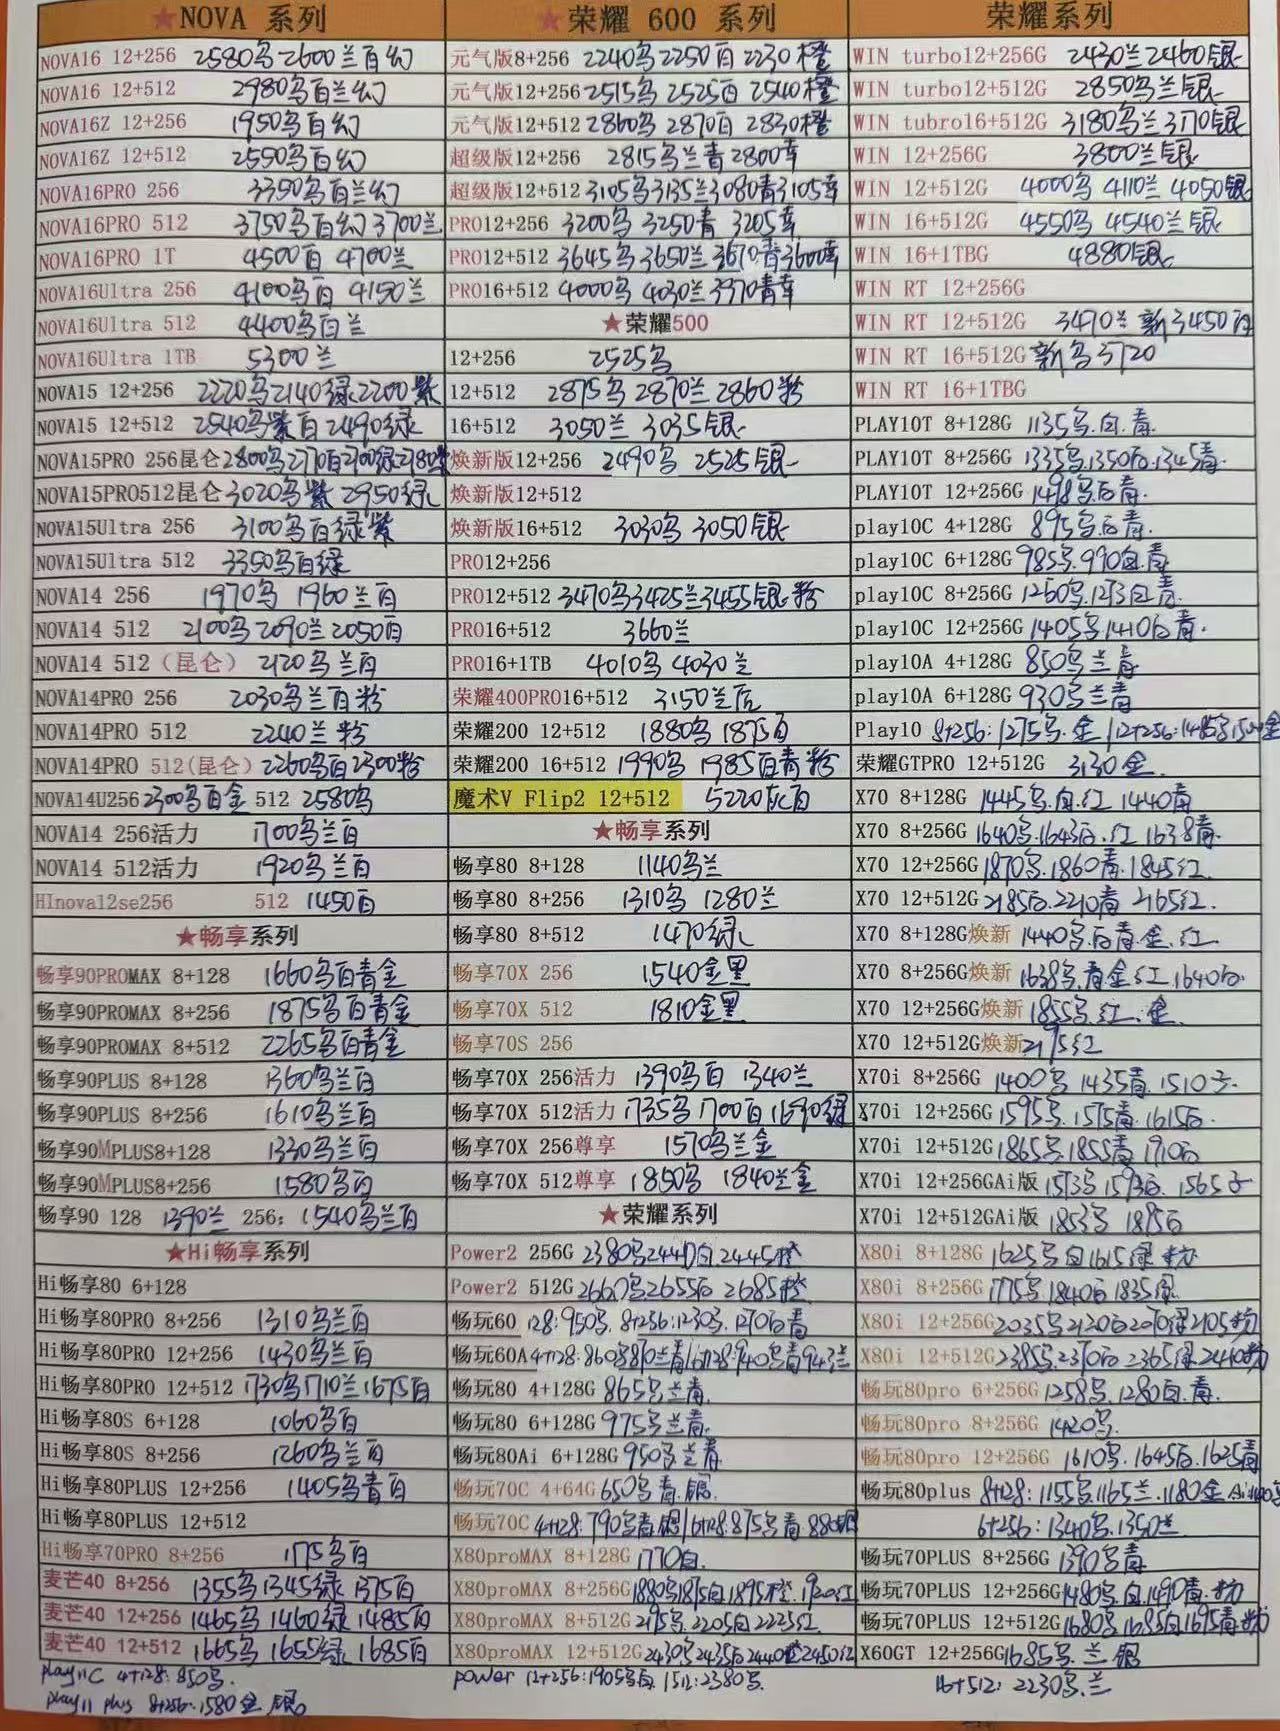 ★NOVA 系列
NOVA16 12+256 2580乌2600兰百幻
NOVA16 12+512 2980乌百兰幻
NOVA16Z 12+256 1950乌百幻
NOVA16Z 12+512 2550乌百幻
NOVA16PRO 256 3350乌百兰幻
NOVA16PRO 512 3750乌百幻3700兰
NOVA16PRO 1T 4500百 4700兰
NOVA16Ultra 256 4100乌百 4150兰
NOVA16Ultra 512 4400乌百兰
NOVA16Ultra 1TB 5300兰
NOVA15 12+256 2220乌2140绿2200紫
NOVA15 12+512 2540乌紫百2490绿
NOVA15PRO 256昆仑2800乌2770百2700绿2780紫
NOVA15PRO512昆仑3020乌紫 2950绿
NOVA15Ultra 256 3100乌百绿紫
NOVA15Ultra 512 3350乌百绿
NOVA14 256 1970乌 1960兰百
NOVA14 512 2100乌2090兰2050百
NOVA14 512（昆仑） 2120乌兰百
NOVA14PRO 256 2030乌兰百粉
NOVA14PRO 512 2240兰粉
NOVA14PRO 512(昆仑)2260乌百2300粉
NOVA14U256 2300乌百金 512 2580乌
NOVA14 256活力 1700乌兰百
NOVA14 512活力 1920乌兰百
HInova12se256 512 1450百
★畅享系列
畅享90PROMAX 8+128 1660乌百青金
畅享90PROMAX 8+256 1875乌百青金
畅享90PROMAX 8+512 2265乌百青金
畅享90PLUS 8+128 1360乌兰百
畅享90PLUS 8+256 1610乌兰百
畅享90MPLUS8+128 1330乌兰百
畅享90MPLUS8+256 1580乌百
畅享90 128 1390兰 256: 1540乌兰百
★Hi畅享系列
Hi畅享80 6+128
Hi畅享80PRO 8+256 1310乌兰百
Hi畅享80PRO 12+256 1430乌兰百
Hi畅享80PRO 12+512 1730乌1710兰1675百
Hi畅享80S 6+128 1060乌百
Hi畅享80S 8+256 1260乌兰百
Hi畅享80PLUS 12+256 1405乌青百
Hi畅享80PLUS 12+512
Hi畅享70PRO 8+256 1175乌百
麦芒40 8+256 1355乌1345绿1375百
麦芒40 12+256 1465乌1460绿1485百
麦芒40 12+512 1665乌1655绿1685百
play11C 4+128: 850乌.
play11 plus 8+256: 1580金.银.
★荣耀 600 系列
元气版8+256 2240乌2250百2230橙
元气版12+256 2515乌2525百2540橙
元气版12+512 2860乌2870百2830橙
超级版12+256 2815乌兰青2800幸
超级版12+512 3105乌3135兰3080青3105幸
PRO12+256 3200乌 3250青 3205幸
PRO12+512 3645乌3650兰3670青3600幸
PRO16+512 4000乌4030兰3970青幸
★荣耀500
12+256 2525乌
12+512 2875乌2870兰2860粉
16+512 3050兰 3035银
焕新版12+256 2490乌 2525银
焕新版12+512
焕新版16+512 3030乌 3050银
PRO12+256
PRO12+512 3470乌3425兰3455银粉
PRO16+512 3660兰
PRO16+1TB 4010乌 4030兰
荣耀400PRO16+512 3150兰灰
荣耀200 12+512 1880乌1875百
荣耀200 16+512 1990乌 1985百青粉
魔术V Flip2 12+512 5220灰百
★畅享系列
畅享80 8+128 1140乌兰
畅享80 8+256 1310乌 1280兰
畅享80 8+512 1470绿
畅享70X 256 1540金黑
畅享70X 512 1810金黑
畅享70S 256
畅享70X 256活力 1390乌百 1340兰
畅享70X 512活力 1735乌1700百1690绿
畅享70X 256尊享 1570乌兰金
畅享70X 512尊享 1850乌 1840兰金
★荣耀系列
Power2 256G 2380乌2440白2445橙
Power2 512G 2660乌2655白2685橙
畅玩60 128:950乌. 8+256:1230乌.1270白青
畅玩60A 4+128:860乌870兰青/6+128:940乌青943兰
畅玩80 4+128G 865乌兰青.
畅玩80 6+128G 975乌兰青.
畅玩80Ai 6+128G 950乌兰青
畅玩70C 4+64G 650乌青.银.
畅玩70C 4+128:790乌青银/6+128:875乌青.880银
X80proMAX 8+128G 1770白.
X80proMAX 8+256G 1880乌1875白1895橙.1920红
X80proMAX 8+512G 2195乌.2205白2225红.
X80proMAX 12+512G 2430乌2435白2440橙2450红
power 12+256:1905乌白. 512:2380乌.
荣耀系列
WIN turbo12+256G 2430兰2460银
WIN turbo12+512G 2850乌兰银
WIN tubro16+512G 3180乌兰3170银
WIN 12+256G 3800兰银
WIN 12+512G 4000乌 4110兰 4050银
WIN 16+512G 4550乌 4540兰银
WIN 16+1TBG 4880银
WIN RT 12+256G
WIN RT 12+512G 3470兰 新3450白
WIN RT 16+512G 新乌3720
WIN RT 16+1TBG
PLAY10T 8+128G 1135乌.白.青.
PLAY10T 8+256G 1335乌.1350白.1345青.
PLAY10T 12+256G 1498乌白青.
play10C 4+128G 895乌白青.
play10C 6+128G 985乌.990白.青
play10C 8+256G 1260乌.1273白青.
play10C 12+256G 1405乌1410白青.
play10A 4+128G 850乌兰青
play10A 6+128G 930乌兰青
Play10 8+256:1275乌.金/12+256:1485乌1500金
荣耀GTPRO 12+512G 3130金.
X70 8+128G 1445乌.白.红 1440青
X70 8+256G 1640乌.1643白.红 1638青.
X70 12+256G 1870乌.1860青.1845红.
X70 12+512G 2185白.2210青 2165红.
X70 8+128G焕新 1440乌.白青.金.红
X70 8+256G焕新 1638乌.青金红 1640白.
X70 12+256G焕新 1855乌.红.金.
X70 12+512G焕新 2175红
X70i 8+256G 1400乌 1435青.1510子.
X70i 12+256G 1595乌.1575青.1615白.
X70i 12+512G 1865乌.1855青 1910白
X70i 12+256GAi版 1573乌1593白. 1565子
X70i 12+512GAi版 1853乌 1895白
X80i 8+128G 1625乌白1615绿粉
X80i 8+256G 1775乌.1840白1835绿
X80i 12+256G 2035乌2120白2070绿2105粉
X80i 12+512G 2385乌2370白2365绿2410粉
畅玩80pro 6+256G 1258乌.1280白.青.
畅玩80pro 8+256G 1420乌.
畅玩80pro 12+256G 1610乌.1645白.1625青
畅玩80plus 8+128:1155乌.1165兰.1180金
6+256:1340乌.1350兰
畅玩70PLUS 8+256G 1390乌青
畅玩70PLUS 12+256G 1480乌.白1490青.粉
畅玩70PLUS 12+512G 1680乌1685白1695青粉
X60GT 12+256G 1685乌.兰 银
16+512: 2230乌.兰